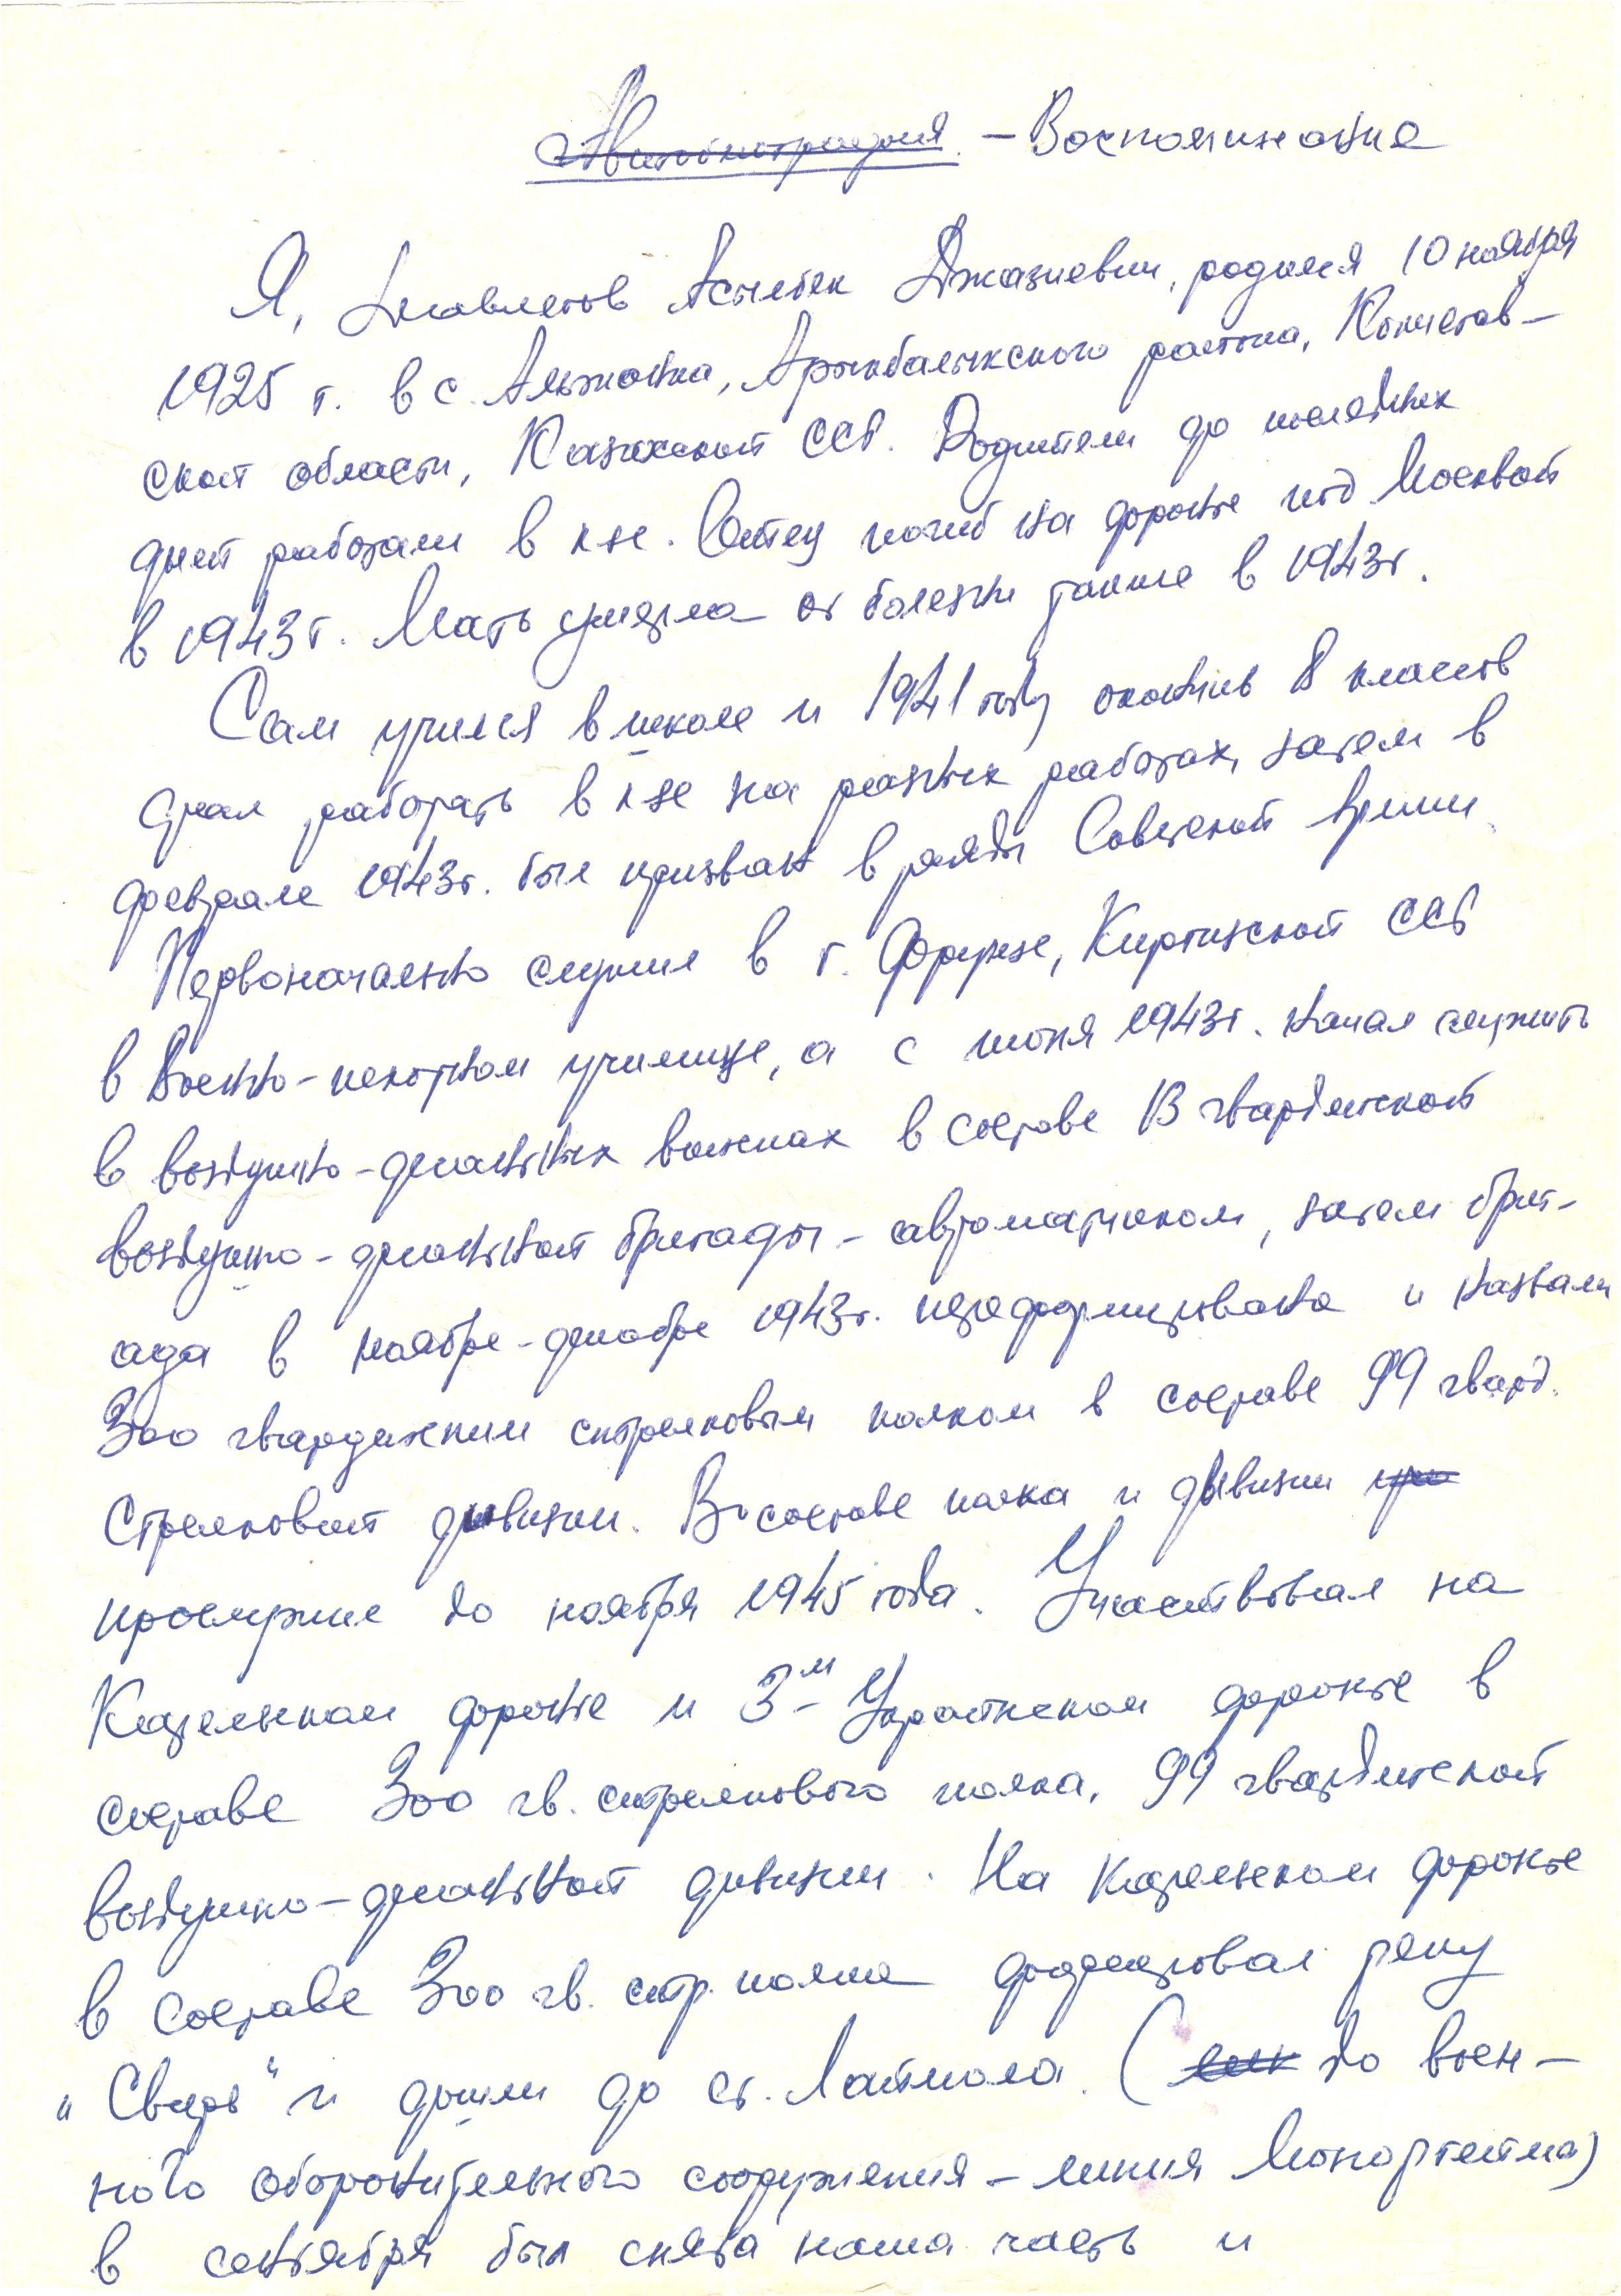 Автобиография. – Воспоминание
Я, Асылбек Джазиевич, родился 10 ноября
1925 г. в с. Альжанка, Арыкбалыкского района, Кокчетав–
ской области, Казахской ССР. Родители до последних
дней работали в к-зе. Отец погиб на фронте под Москвой
в 1943 г. Мать умерла от болезни также в 1943 г.
Сам учился в школе и 1941 году окончив 8 классов
стал работать в к-зе на разных работах, затем в
феврале 1943 г. был призван в ряды Советской Армии.
Первоначально служил в г. Фрунзе, Киргизской ССР
в Военно-пехотном училище, а с июня 1943 г. начал служить
в воздушно-десантных войсках в составе 13 гвардейской
воздушно-десантной бригады – автоматчиком, затем бриг–
ада в ноябре-декабре 1943 г. переформирована и назвали
300 гвардейским стрелковым полком в составе 99 гвард.
стрелковой дивизии. В составе полка и дивизии при
прослужил до ноября 1945 года. Участвовал на
Карельском фронте и 3-м Украинском фронте в
составе 300 гв. стрелкового полка, 99 гвардейской
воздушно-десантной дивизии. На Карельском фронте
в составе 300 гв. стр. полка форсировал реку
„Свирь“ и дошли до ст. Лаймола. (до воен–
ного оборонительного сооружения – линия Монергейма)
в сентября был снята наша часть и